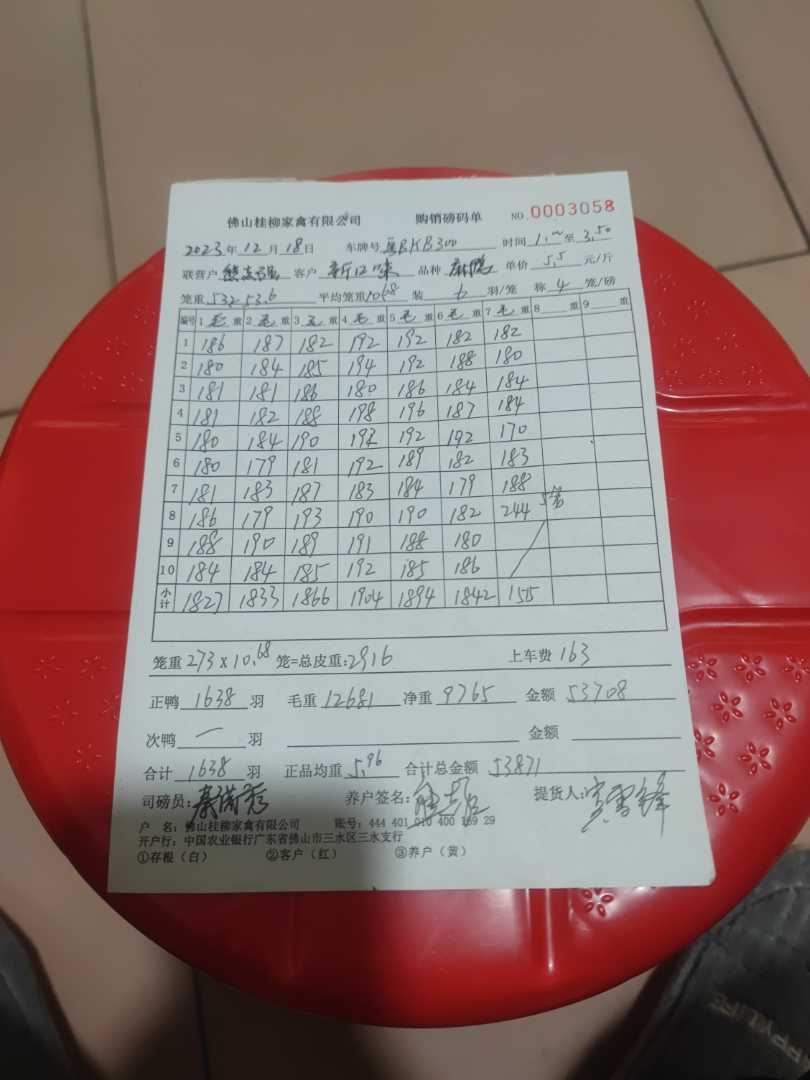 佛山桂柳家禽有限公司 购销磅码单 NO.0003058
2023年12月18日 车牌号 BKB300 时间1.00至3.50
联营户 客户 新口味 品种 麻鸭 单价 5.5 元/斤
笼重 532 53.6 平均笼重10.68 装 6 羽/笼 称 4 笼/磅
编号 1 毛 重 2 毛 重 3 毛 重 4 毛 重 5 毛 重 6 毛 重 7 毛 重 8 重 9 重
1 186 187 182 192 192 182 182
2 180 184 185 194 192 188 180
3 181 181 186 180 186 184 184
4 181 182 188 198 196 187 184
5 180 184 190 192 192 192 170
6 180 179 181 192 189 182 183
7 181 183 187 183 184 179 188
8 186 179 193 190 190 182 244 5笼
9 188 190 189 191 188 180
10 184 184 185 192 185 186
小计 1827 1833 1866 1904 1894 1842 1515
笼重273×10.68笼=总皮重:2916 上车费 163
正鸭 1638 羽 毛重 12681 净重 9765 金额 53708
次鸭 — 羽 金额
合计 1638 羽 正品均重 5.96 合计总金额 53871
司磅员: 养户签名: 提货人:
户 名: 佛山桂柳家禽有限公司 账号: 444 401 010 400 169 29
开户行: 中国农业银行广东省佛山市三水区三水支行
①存根（白） ②客户（红） ③养户（黄）